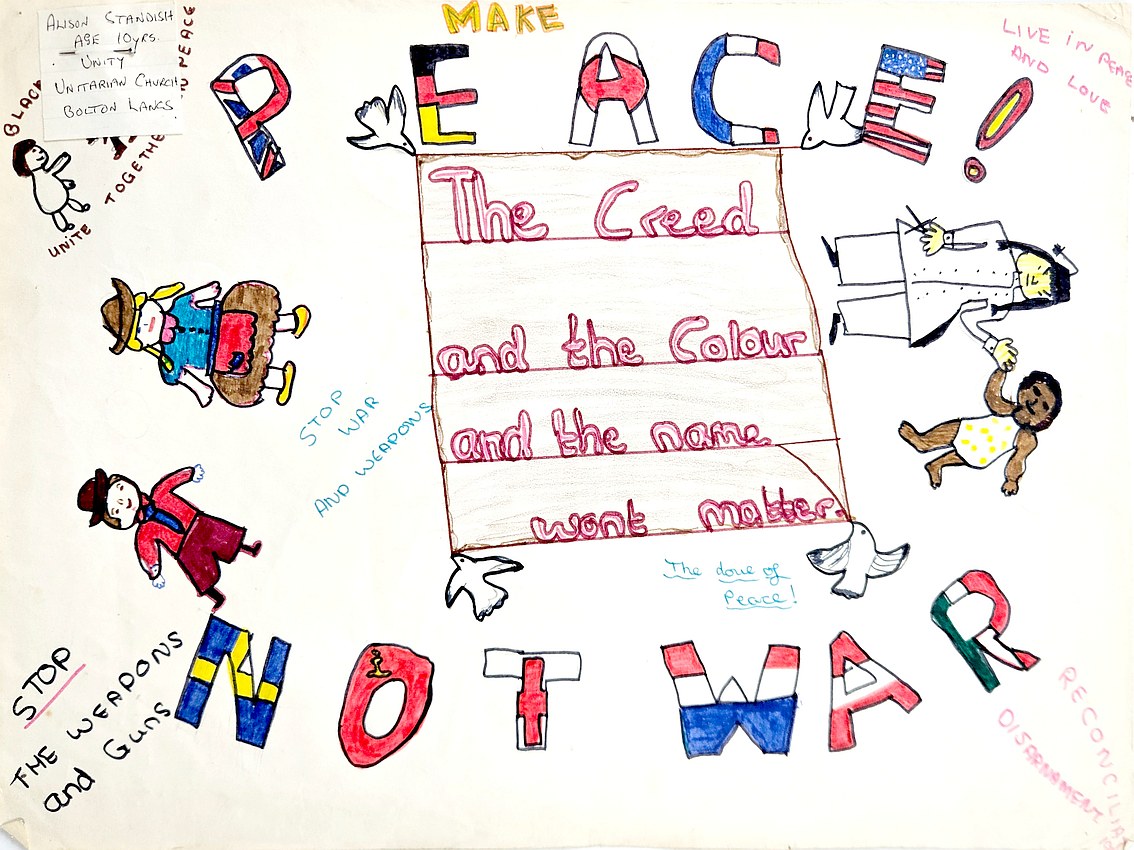 ALISON STANDISH
AGE 10yrs.
UNITY
UNITARIAN CHURCH
BOLTON LANCS.
MAKE
PEACE!
LIVE IN PEACE
AND LOVE
BLACK
PEACE
TOGETHE
UNITE
The Creed
and the Colour
and the name
wont matter.
STOP
WAR
AND WEAPONS
The dove of
Peace!
NOT WAR
STOP
THE WEAPONS
and Guns
RECONCILIA
DISARMAMENT